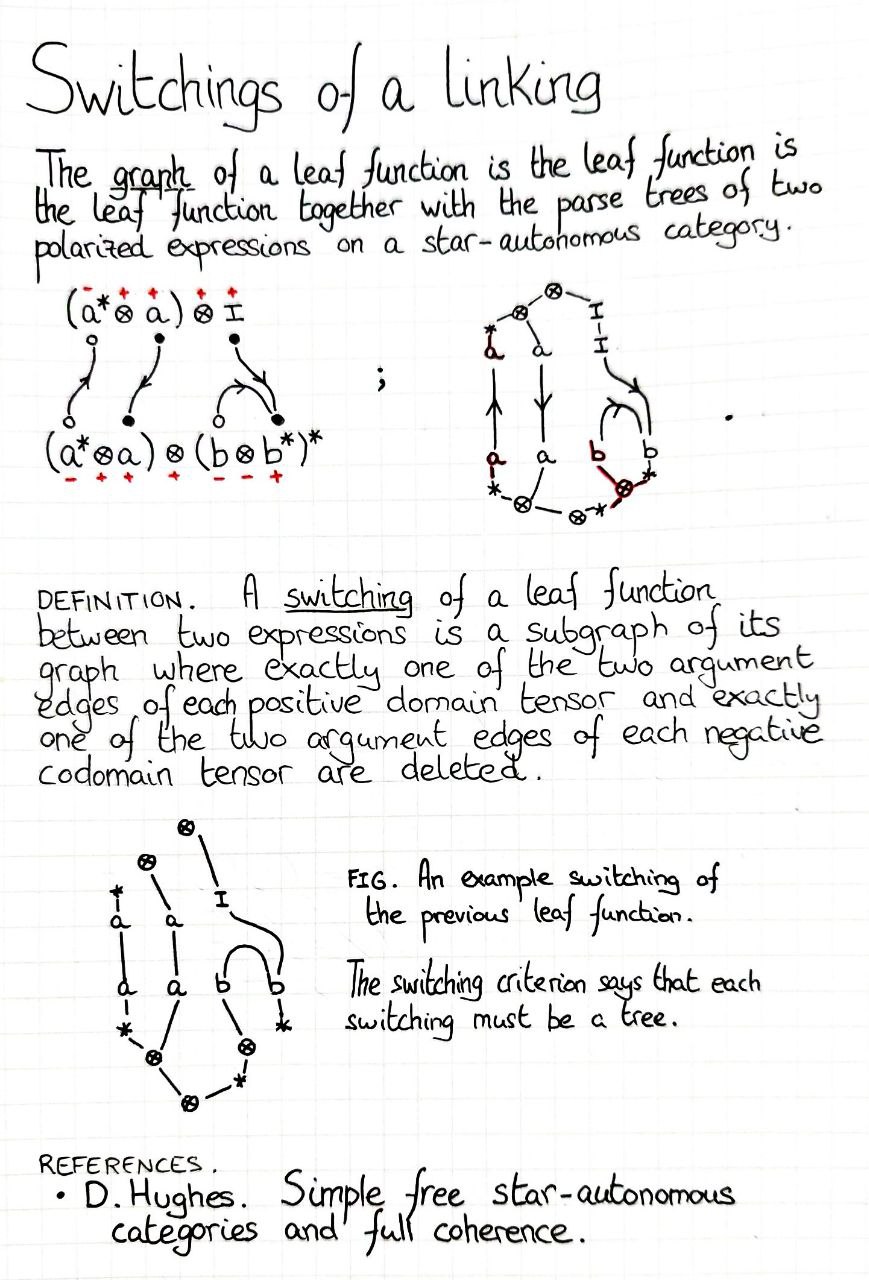 Switchings of a linking
The graph of a leaf function is the leaf function is
the leaf function together with the parse trees of two
polarized expressions on a star-autonomous category.
- + + + +
(a* ⊗ a) ⊗ I
;
(a*⊗a) ⊗ (b⊗b*)*
- + + + - - +
⊗
⊗ I
* I
a a
.
a a b b
* ⊗ ⊗ *
⊗ *
DEFINITION. A switching of a leaf function
between two expressions is a subgraph of its
graph where exactly one of the two argument
edges of each positive domain tensor and exactly
one of the two argument edges of each negative
codomain tensor are deleted.
⊗
⊗
* I
a a
a a b b
* *
⊗ ⊗
*
⊗
FIG. An example switching of
the previous leaf function.
The switching criterion says that each
switching must be a tree.
REFERENCES.
• D. Hughes. Simple free star-autonomous
categories and full coherence.